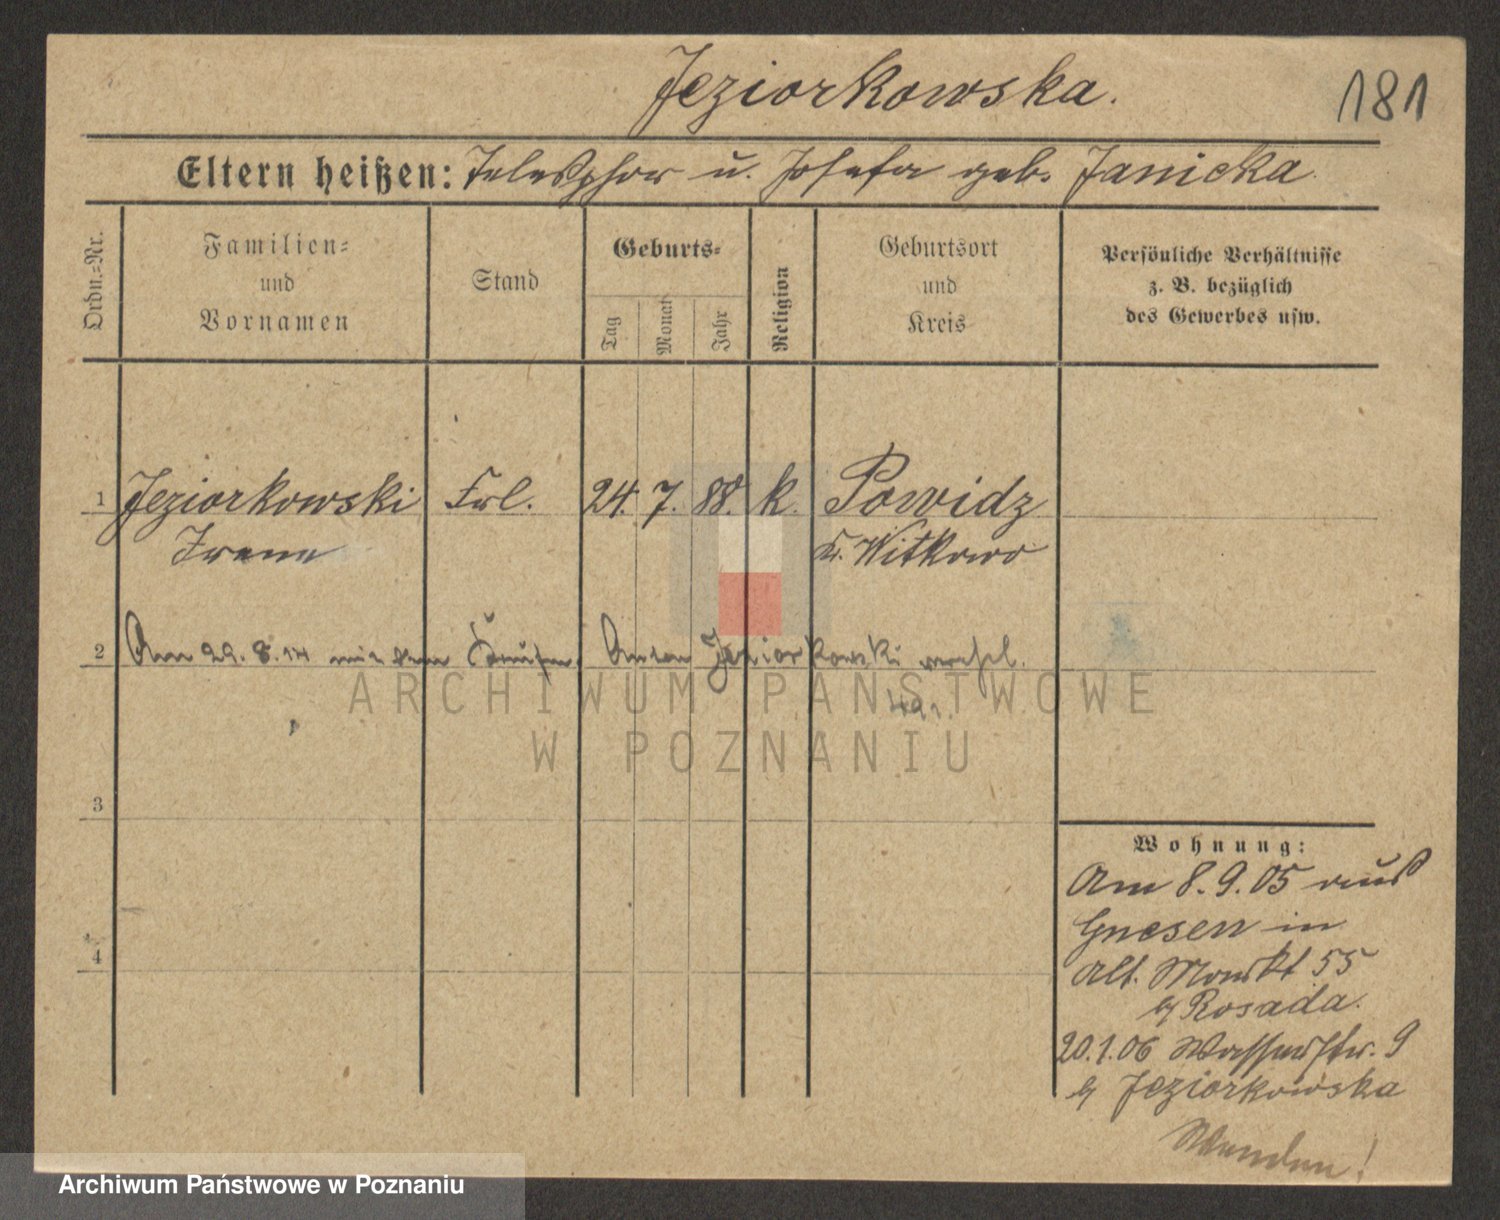 Jeziorkowska.
181
Eltern heißen: Telesphor u. Josefa geb. Janicka.
Ordn.=Nr.
Familien=
und
Vornamen
Stand
Geburts=
Tag
Monat
Jahr
Religion
Geburtsort
und
Kreis
Persönliche Verhältnisse
z. B. bezüglich
des Gewerbes usw.
1 Jeziorkowski Frl. 24. 7. 88. k. Powidz
Irene Kr. Witkowo
2 Am 29. 8. 14 mit dem Anton Jeziorkowski verehel.
ARCHIWUM PAŃSTWOWE
W POZNANIU
3
4
Wohnung:
Am 8. 9. 05 aus
Gnesen in
Alt. Markt 55
b/ Rosada.
20.1.06 Wasserstr. 9
b/ Jeziorkowska
Wenden!
Archiwum Państwowe w Poznaniu